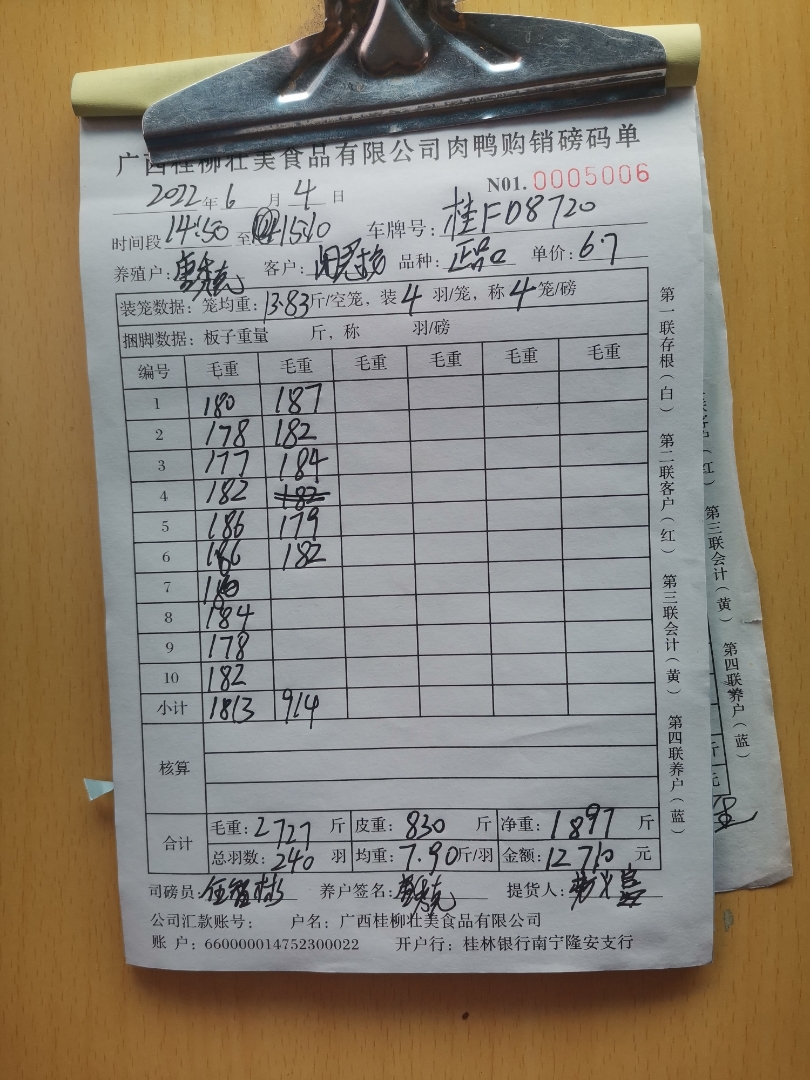 广西桂柳壮美食品有限公司肉鸭购销磅码单
2022年6月4日 N01.0005006
时间段14:50至15:10 车牌号:桂FD8720
养殖户: 客户: 品种:正品 单价:6.7
装笼数据:笼均重:13.83斤/空笼,装4羽/笼,称4笼/磅
捆脚数据:板子重量 斤,称 羽/磅
编号 毛重 毛重 毛重 毛重 毛重 毛重
1 180 187
2 178 182
3 177 184
4 182 182
5 186 179
6 186 182
7
8 184
9 178
10 182
小计 1813 914
核算
合计 毛重:2727斤 皮重:830斤 净重:1897斤
总羽数:240羽 均重:7.90斤/羽 金额:12710元
司磅员: 养户签名: 提货人:
公司汇款账号: 户名:广西桂柳壮美食品有限公司
账 户:660000014752300022 开户行:桂林银行南宁隆安支行
第一联存根(白) 第二联客户(红) 第三联会计(黄) 第四联养户(蓝)
第三联会计(黄) 第四联养户(蓝)
斤
元